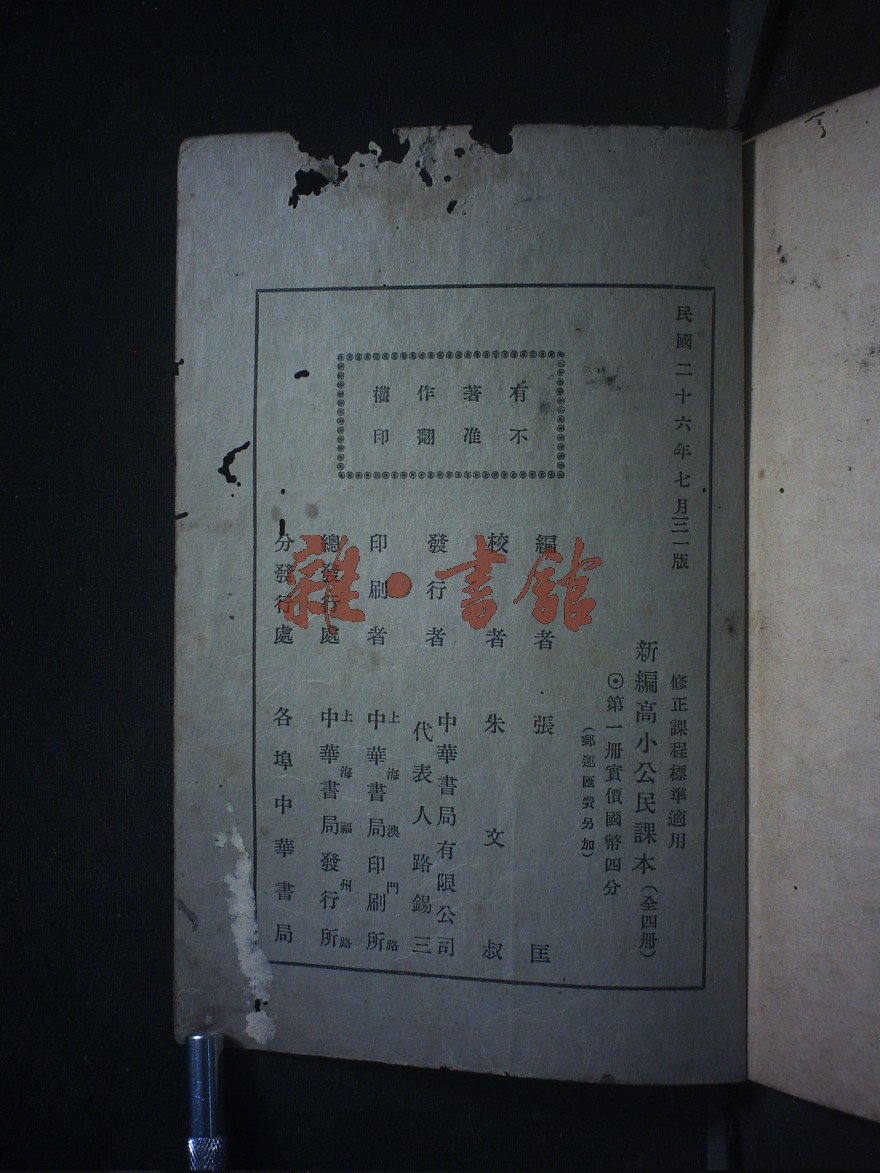 民國二十六年七月三一版
修正課程標準適用
新編高小公民課本（全四册）
⊙第一册實價國幣四分
（郵運匯費另加）
有不
著准
作翻
權印
編者 張匡
校者 朱文叔
發行者 中華書局有限公司
代表人路錫三
印刷者 上海澳門路
中華書局印刷所
總發行處 上海福州路
中華書局發行所
分發行處 各埠中華書局
雜·書館